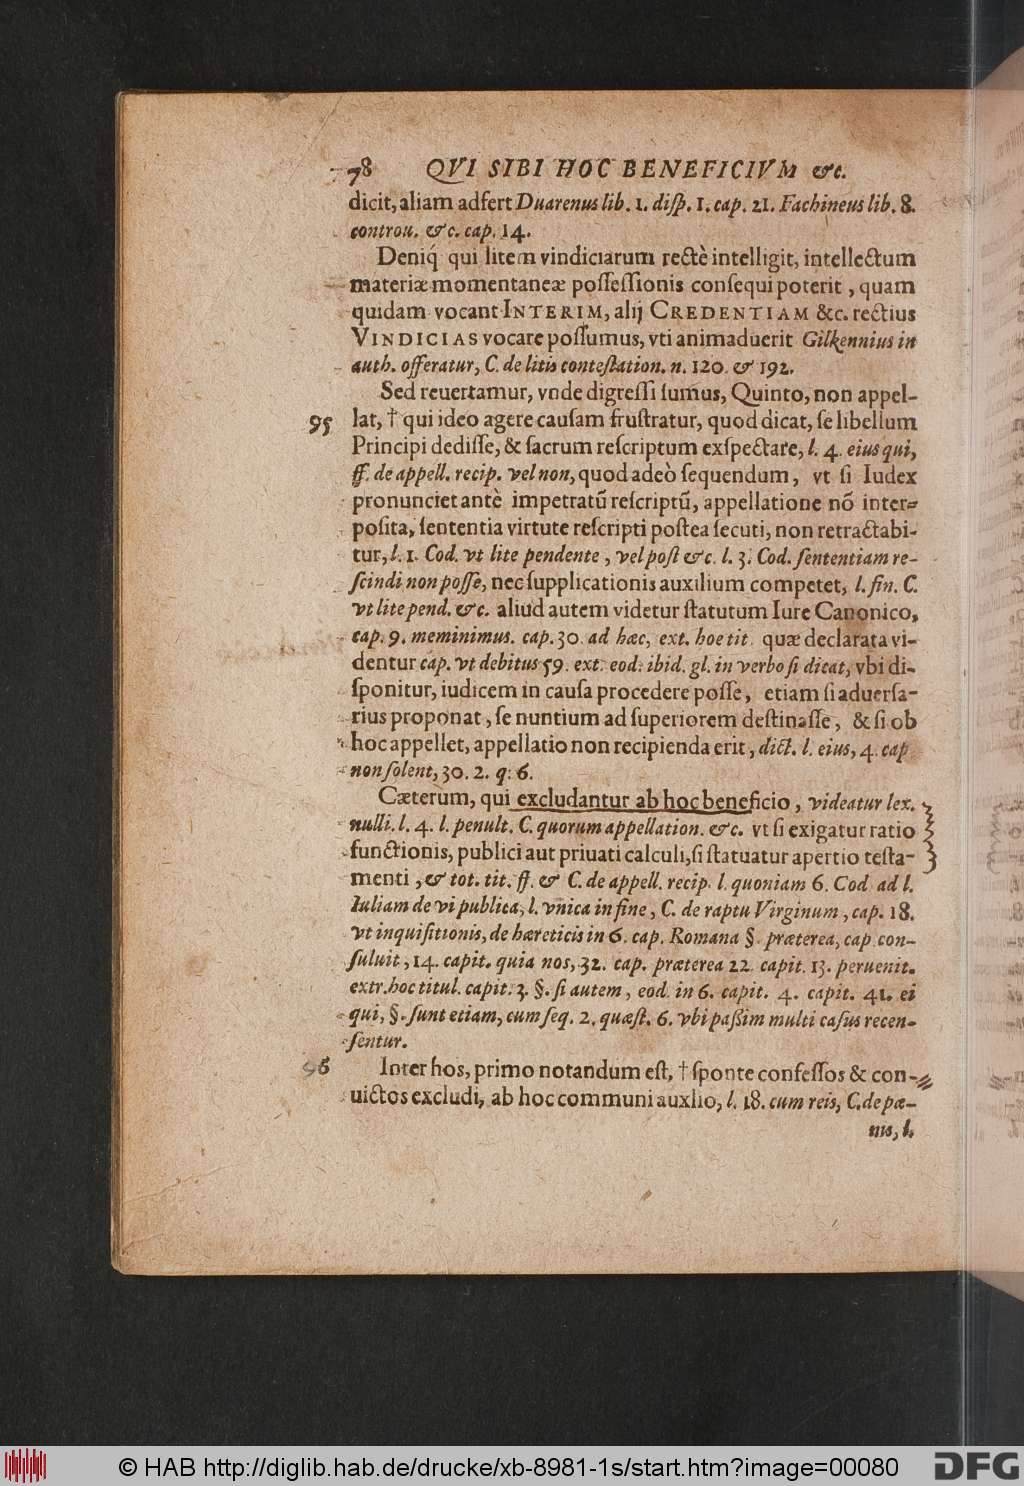 78 QVI SIBI HOC BENEFICIVM &c.
dicit, aliam adfert Duarenus lib. 1. diſp. 1. cap. 21. Fachineus lib. 8.
controu. &c. cap. 14.
Deniq́ qui litem vindiciarum rectè intelligit, intellectum
materiæ momentaneæ poſſeſſionis conſequi poterit, quam
quidam vocant INTERIM, alij CREDENTIAM &c. rectius
VINDICIAS vocare poſſumus, vti animaduerit Gilkennius in
auth. offeratur, C. de litis conteſtation. n. 120. & 192.
Sed reuertamur, vnde digreſſi ſumus, Quinto, non appel-
95 lat, † qui ideo agere cauſam fruſtratur, quod dicat, ſe libellum
Principi dediſſe, & ſacrum reſcriptum exſpectare, l. 4. eius qui,
ff. de appell. recip. vel non, quod adeò ſequendum, vt ſi Iudex
pronunciet antè impetratū reſcriptū, appellatione nō inter-
poſita, ſententia virtute reſcripti poſtea ſecuti, non retractabi-
tur, l. 1. Cod. vt lite pendente, vel poſt &c. l. 3. Cod. ſententiam re-
ſcindi non poſſe, nec ſupplicationis auxilium competet, l. fin. C.
vt lite pend. &c. aliud autem videtur ſtatutum Iure Canonico,
cap. 9. meminimus. cap. 30. ad hæc, ext. hoc tit. quæ declarata vi-
dentur cap. vt debitus 59. ext. eod. ibid. gl. in verbo ſi dicat, vbi di-
ſponitur, iudicem in cauſa procedere poſſe, etiam ſi aduerſa-
rius proponat, ſe nuntium ad ſuperiorem deſtinaſſe, & ſi ob
hoc appellet, appellatio non recipienda erit, dict. l. eius, 4. cap
non ſolent, 30. 2. q. 6.
Cæterùm, qui excludantur ab hoc beneficio, videatur lex.
nulli. l. 4. l. penult. C. quorum appellation. &c. vt ſi exigatur ratio
functionis, publici aut priuati calculi, ſi ſtatuatur apertio teſta-
menti, & tot. tit. ff. & C. de appell. recip. l. quoniam 6. Cod. ad l.
Iuliam de vi publica, l. vnica in fine, C. de raptu Virginum, cap. 18.
vt inquiſitionis, de hæreticis in 6. cap. Romana §. præterea, cap. con-
ſuluit, 14. capit. quia nos, 32. cap. præterea 22. capit. 13. peruenit.
extr. hoc titul. capit. 3. §. ſi autem, eod. in 6. capit. 4. capit. 41. ei
qui, §. ſunt etiam, cum ſeq. 2. quæſt. 6. vbi paßim multi caſus recen-
ſentur.
96 Inter hos, primo notandum eſt, † ſponte confeſſos & con-
uictos excludi, ab hoc communi auxlio, l. 18. cum reis, C. de pæ-
nis, l.
© HAB http://diglib.hab.de/drucke/xb-8981-1s/start.htm?image=00080
DFG